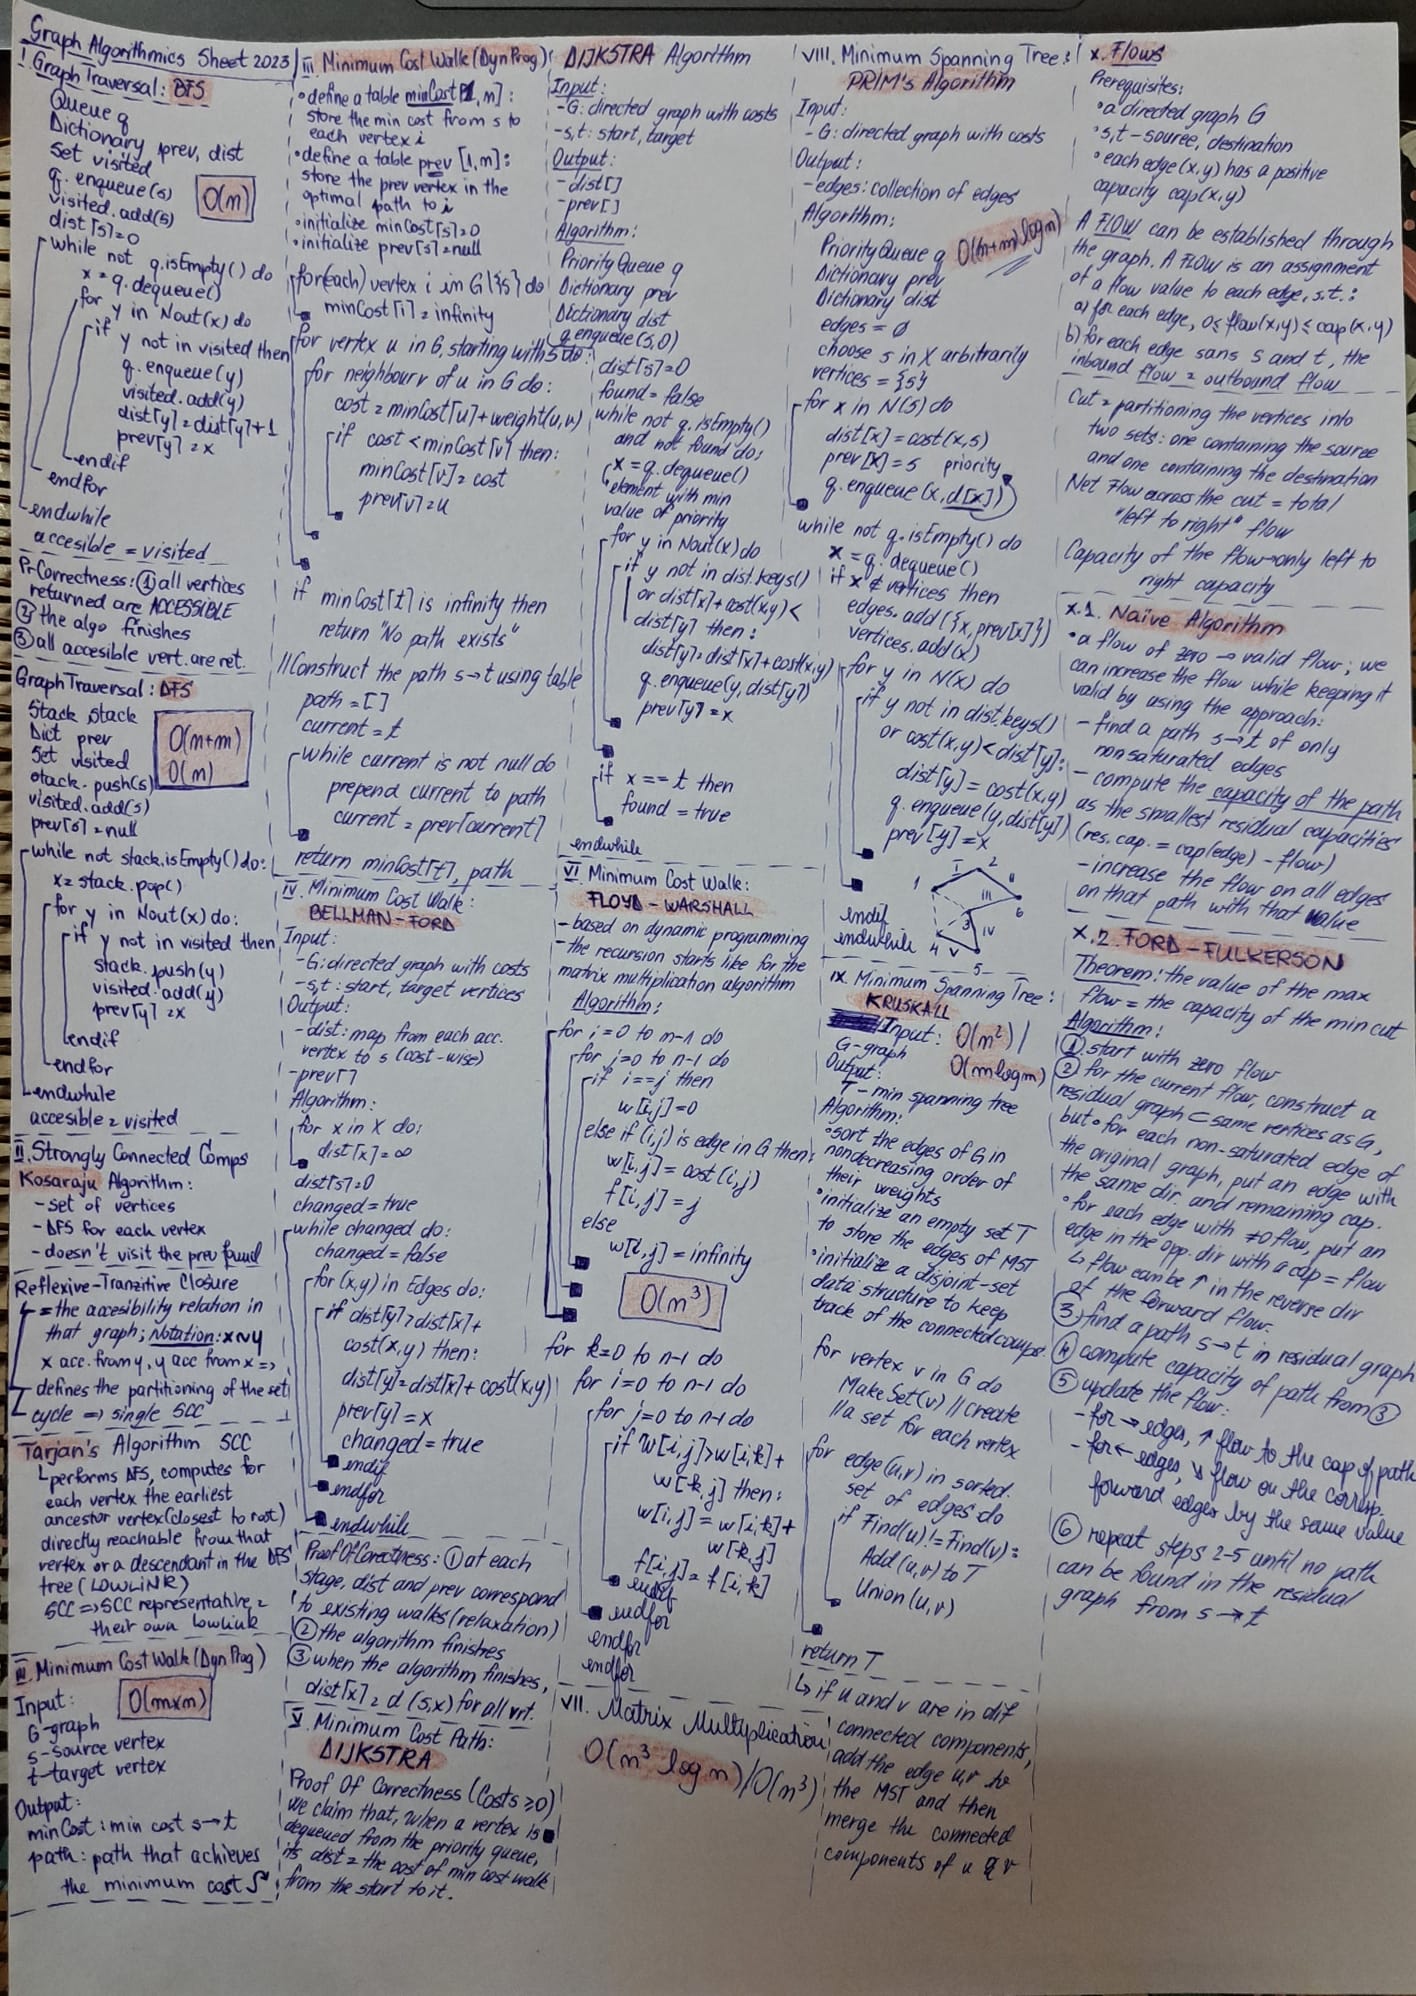 Graph Algorithmics Sheet 2023
I Graph Traversal: BFS
Queue q
Dictionary prev, dist
Set visited
q.enqueue(s)
visited.add(s)
dist[s]=0
O(n)
while not q.isEmpty() do
x = q.dequeue()
for y in Nout(x) do
if
y not in visited then
q.enqueue(y)
visited.add(y)
dist[y]=dist[y]+1
prev[y]=x
endif
endfor
endwhile
accesible = visited
Pr Correctness: ① all vertices
returned are ACCESSIBLE
② the algo finishes
③ all accesible vert. are ret.
Graph Traversal: DFS
Stack stack
Dict prev
Set visited
stack.push(s)
visited.add(s)
prev[s]=null
O(n+m)
O(m)
while not stack.isEmpty() do:
x = stack.pop()
for y in Nout(x) do:
if y not in visited then
stack.push(y)
visited.add(y)
prev[y]=x
endif
endfor
endwhile
accesible = visited
II. Strongly Connected Comps
Kosaraju Algorithm:
- set of vertices
- DFS for each vertex
- doesn't visit the prev found
Reflexive-Tranzitive Closure
= the accesibility relation in
that graph; Notation: x~y
x acc. from y, y acc from x =>
defines the partitioning of the set
cycle => single SCC
Tarjan's Algorithm SCC
↳ performs DFS, computes for
each vertex the earliest
ancestor vertex (closest to root)
directly reachable from that
vertex or a descendant in the DFS
tree (LOWLINK)
SCC => SCC representative =
their own lowlink
III. Minimum Cost Walk (Dyn Prog)
Input:
O(m×m)
G-graph
s-source vertex
t-target vertex
Output:
minCost: min cost s→t
path: path that achieves
the minimum cost
III Minimum Cost Walk (Dyn Prog)
• define a table minCost[1, n]:
store the min cost from s to
each vertex i
• define a table prev [1, n]:
store the prev vertex in the
optimal path to i
• initialize minCost[s]=0
• initialize prev[s]=null
for(each) vertex i in G\{s} do
minCost[i] = infinity
for vertex u in G, starting with s do:
for neighbour v of u in G do:
cost = minCost[u]+weight(u,v)
if cost < minCost[v] then:
minCost[v] = cost
prev[v] = u
if minCost[t] is infinity then
return "No path exists"
//Construct the path s→t using table
path = []
current = t
while current is not null do
prepend current to path
current = prev[current]
return minCost[t], path
IV. Minimum Cost Walk:
BELLMAN-FORD
Input:
- G: directed graph with costs
- s,t: start, target vertices
Output:
- dist: map from each acc.
vertex to s (cost-wise)
- prev[]
Algorithm:
for x in X do:
dist[x]=∞
dist[s]=0
changed = true
while changed do:
changed = false
for (x,y) in Edges do:
if dist[y]>dist[x]+
cost(x,y) then:
dist[y]=dist[x]+cost(x,y)
prev[y]=x
changed = true
endif
endfor
endwhile
Proof Of Corectness: ① at each
stage, dist and prev correspond
to existing walks (relaxation)
② the algorithm finishes
③ when the algorithm finishes,
dist[x] = d (s,x) for all vrt.
V Minimum Cost Path:
DIJKSTRA
Proof Of Correctness (Costs ≥0)
We claim that, when a vertex is
dequeued from the priority queue,
its dist = the cost of min cost walk
from the start to it.
DIJKSTRA Algorithm
Input:
- G: directed graph with costs
- s,t: start, target
Output:
- dist[]
- prev[]
Algorithm:
PriorityQueue q
Dictionary prev
Dictionary dist
q.enqueue(s,0)
dist[s]=0
found = false
while not q.isEmpty()
and not found do:
x = q.dequeue()
element with min
value of priority
for y in Nout(x) do
if y not in dist.keys()
or dist[x]+cost(x,y)<
dist[y] then:
dist[y]=dist[x]+cost(x,y)
q.enqueue(y,dist[y])
prev[y]=x
if x == t then
found = true
endwhile
VI Minimum Cost Walk:
FLOYD-WARSHALL
- based on dynamic programming
- the recursion starts like for the
matrix multiplication algorithm
Algorithm:
for i=0 to n-1 do
for j=0 to n-1 do
if i==j then
w[i,j]=0
else if (i,j) is edge in G then:
w[i,j]=cost(i,j)
f[i,j]=j
else
w[i,j]=infinity
O(m³)
for k=0 to n-1 do
for i=0 to n-1 do
for j=0 to n-1 do
if w[i,j]>w[i,k]+
w[k,j] then:
w[i,j]=w[i,k]+
w[k,j]
f[i,j]=f[i,k]
endif
endfor
endfor
endfor
VII. Matrix Multiplication
O(n³ log n)/O(n³)
VIII. Minimum Spanning Tree:
PRIM's Algorithm
Input:
- G: directed graph with costs
Output:
- edges: collection of edges
Algorithm:
PriorityQueue q
O(n+m) log n)
Dictionary prev
Dictionary dist
edges = ∅
choose s in X arbitrarily
vertices = {s}
for x in N(s) do
dist[x]=cost(x,s)
prev[x]=s priority
q.enqueue(x,d[x])
while not q.isEmpty() do
x = q.dequeue()
if x ∉ vertices then
edges.add({x,prev[x]})
vertices.add(x)
for y in N(x) do
if y not in dist.keys()
or cost(x,y)<dist[y]:
dist[y]=cost(x,y)
q.enqueue(y,dist[y])
prev[y]=x
endif
endwhile
1 I 2 II 6 III 3 IV 4 V 5
IX Minimum Spanning Tree:
KRUSKALL
Input: O(m²)/
O(mlogm)
G-graph
Output:
T-min spanning tree
Algorithm:
• sort the edges of G in
nondecreasing order of
their weights
• initialize an empty set T
to store the edges of MST
• initialize a disjoint-set
data structure to keep
track of the connected comps.
for vertex v in G do
MakeSet(v) // create
// a set for each vertex
for
edge(u,v) in sorted
set of edges do
if Find(u)!=Find(v):
Add(u,v) to T
Union(u,v)
return T
↳ if u and v are in dif
connected components,
add the edge u,v to
the MST and then
merge the connected
components of u & v
X. Flows
Prerequisites:
• a directed graph G
• s,t - source, destination
• each edge (x,y) has a positive
capacity cap(x,y)
A FLOW can be established through
the graph. A FLOW is an assignment
of a flow value to each edge, s.t.:
a) for each edge, 0≤flow(x,y)≤cap(x,y)
b) for each edge sans s and t, the
inbound flow = outbound flow
Cut = partitioning the vertices into
two sets: one containing the source
and one containing the destination
Net Flow across the cut = total
"left to right" flow
Capacity of the flow→only left to
right capacity
X.1. Naive Algorithm
• a flow of zero → valid flow; we
can increase the flow while keeping it
valid by using the approach:
- find a path s→t of only
nonsaturated edges
- compute the capacity of the path
as the smallest residual capacities
(res. cap. = cap(edge) - flow)
- increase the flow on all edges
on that path with that value
X.2. FORD-FULKERSON
Theorem: the value of the max
flow = the capacity of the min cut
Algorithm:
① start with zero flow
② for the current flow, construct a
residual graph ⊂ same vertices as G,
but • for each non-saturated edge of
the original graph, put an edge with
the same dir. and remaining cap.
• for each edge with ≠0 flow, put an
edge in the opp. dir with a cap = flow
↳ flow can be ↑ in the reverse dir
at the forward flow.
③ find a path s→t in residual graph
④ compute capacity of path from ③
⑤ update the flow:
- for → edges, ↑ flow to the cap of path
- for ← edges, ↘ flow on the corresp.
forward edges by the same value
⑥ repeat steps 2-5 until no path
can be found in the residual
graph from s→t